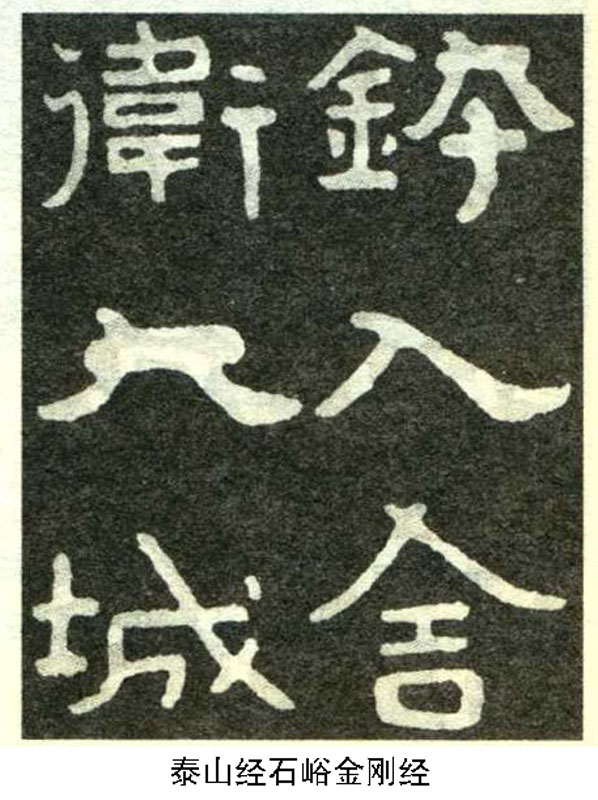 鉢入舍
衛大城
泰山经石峪金刚经